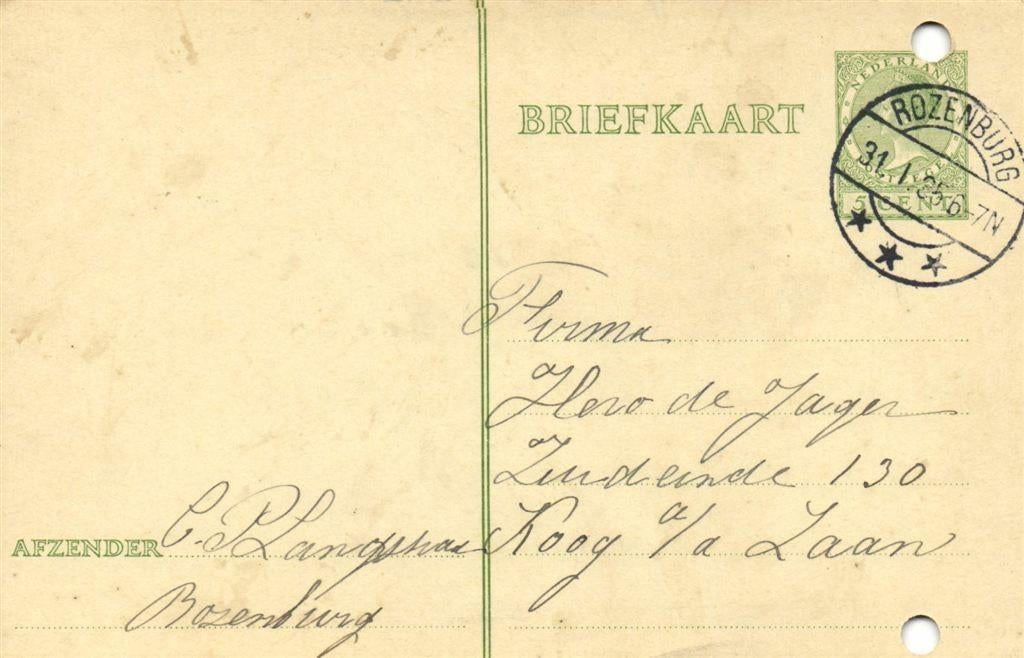 BRIEFKAART
NEDERLAND
5 CENT
ROZENBURG
31.1.35.6-7N
Firma
Hero de Jager
Zuideinde 130
Koog a/a Zaan
AFZENDER C.
Rozenburg